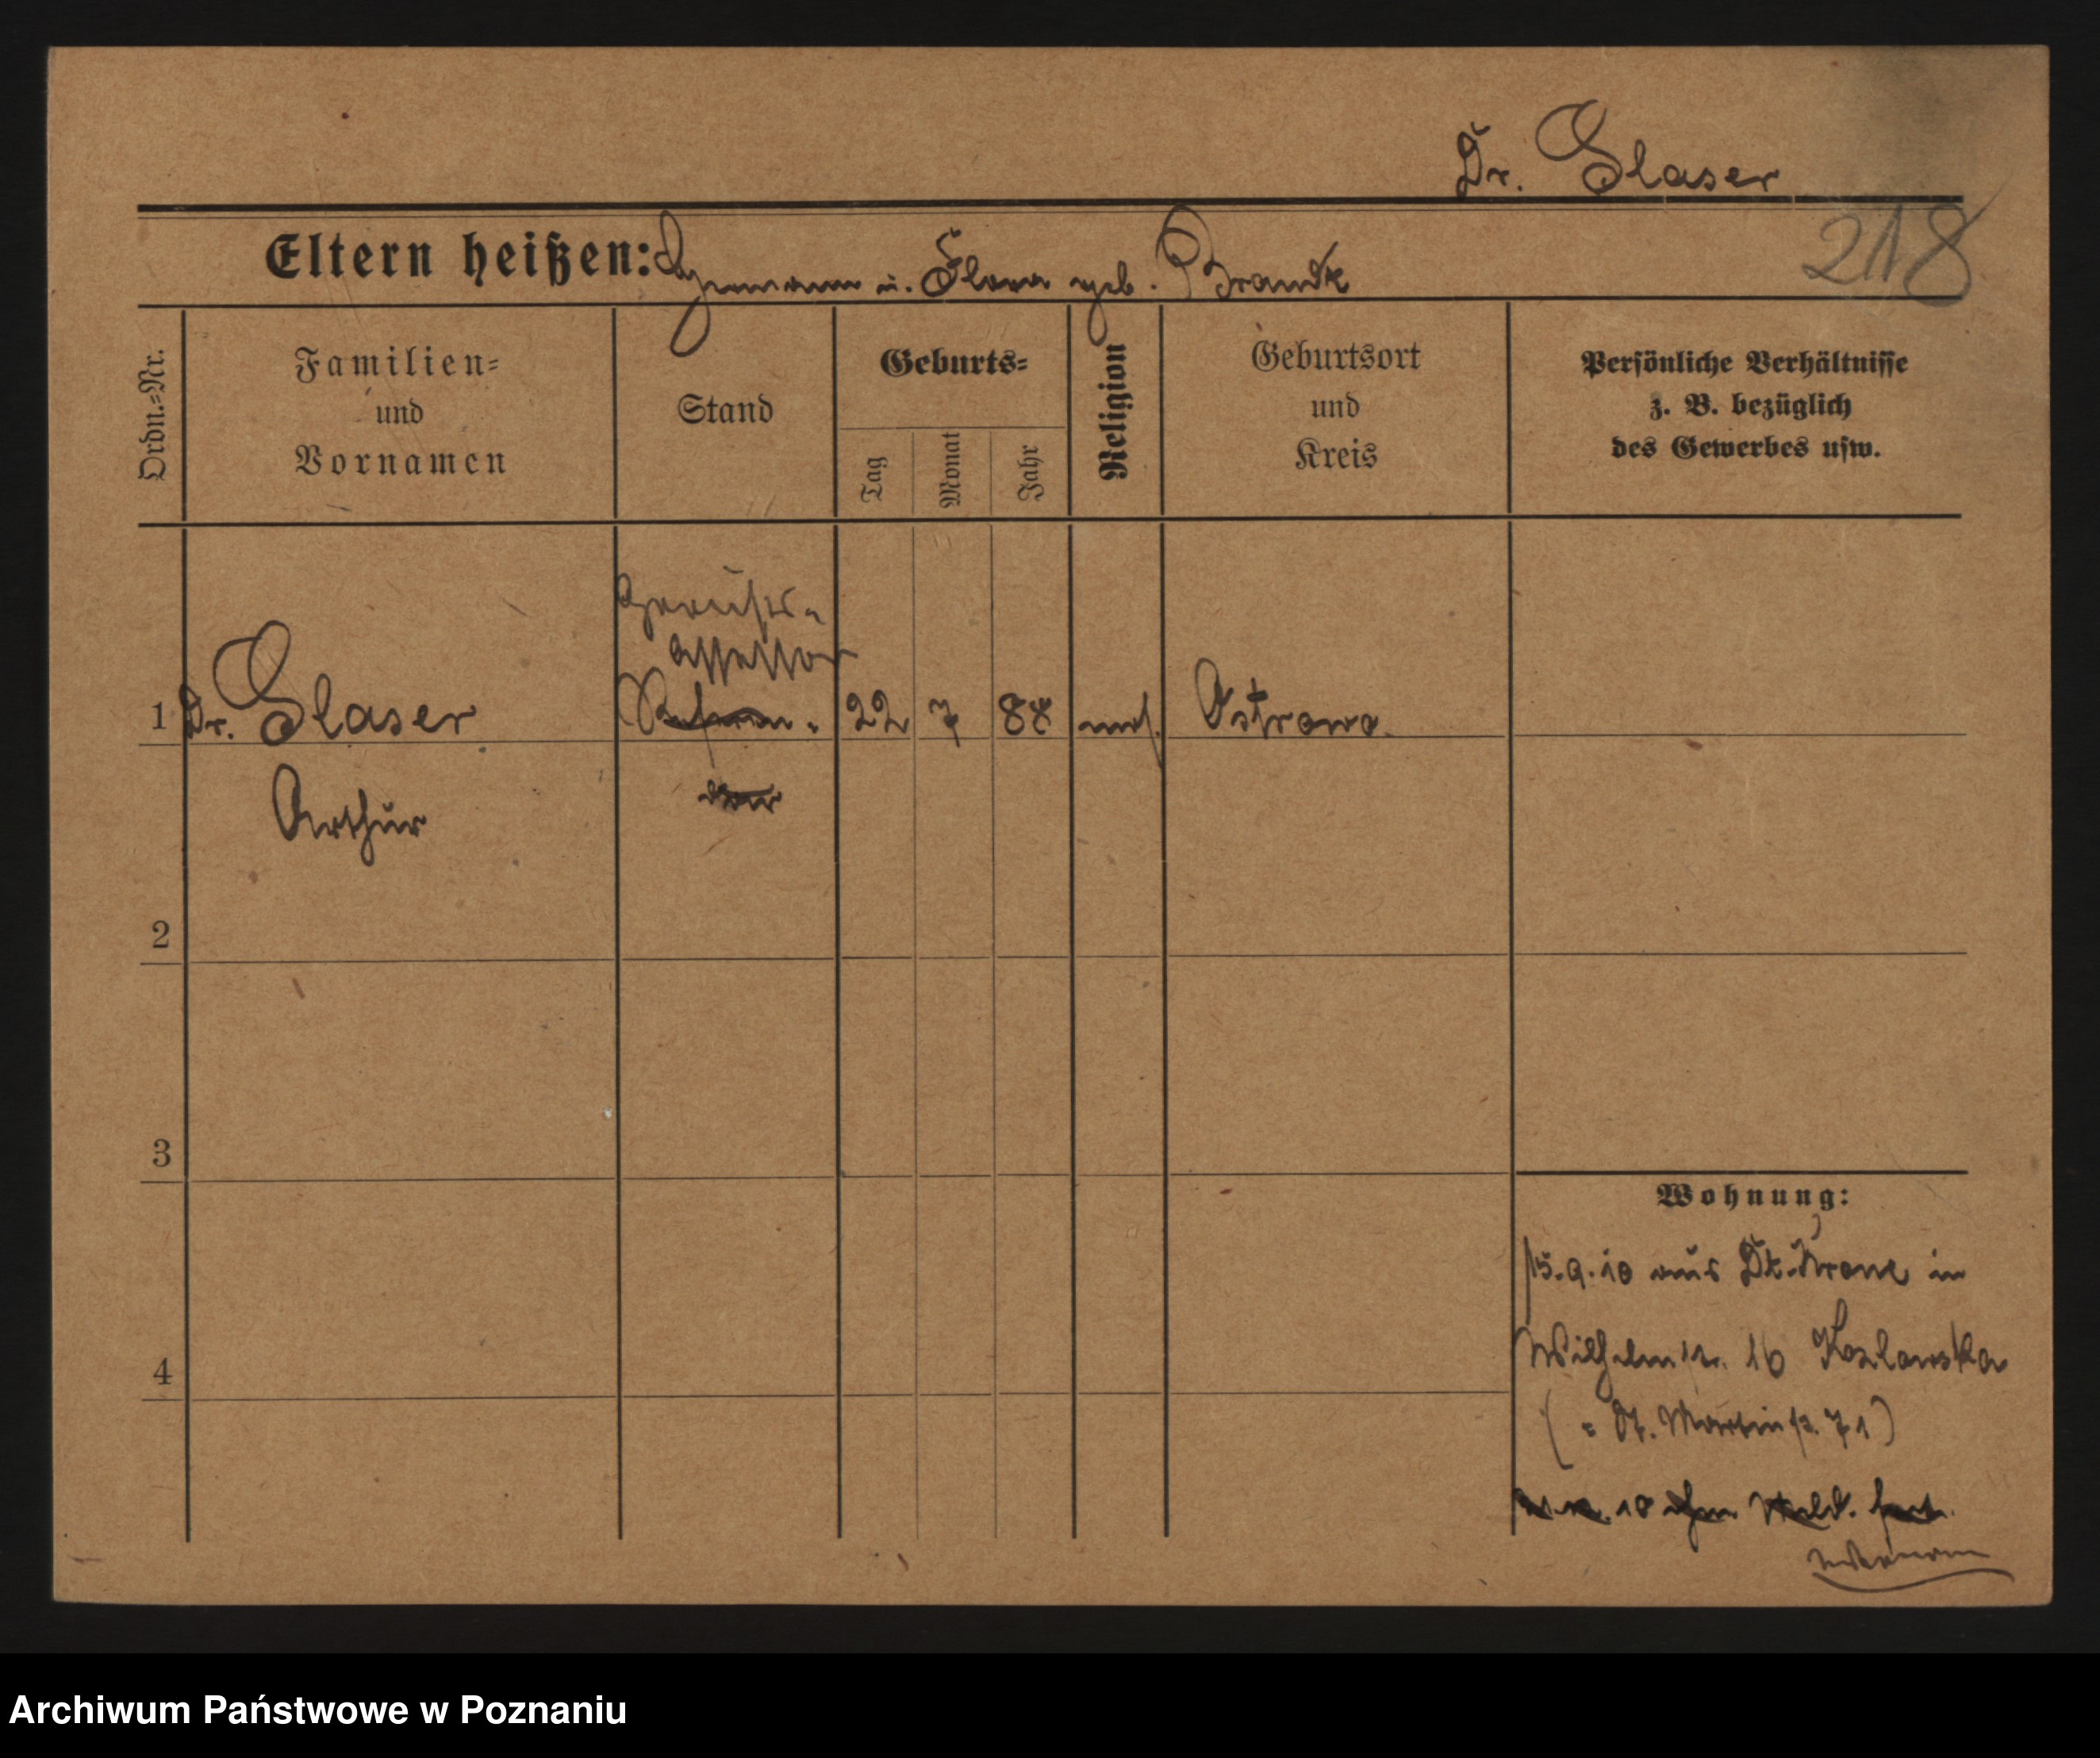 Dr. Glaser
218
Eltern heißen: Hermann u. Flora geb. Brandt
Ordn.=Nr.
Familien=
und
Vornamen
Stand
Geburts=
Tag
Monat
Jahr
Religion
Geburtsort
und
Kreis
Persönliche Verhältnisse
z. B. bezüglich
des Gewerbes usw.
Gerichts-
assessor
1 Dr. Glaser 22 7 88 mos. Ostrowo
Arthur
2
3
4
Wohnung:
15.9.10 aus Dt. Krone in
Wilhelmstr. 16 Kozlowska
(= St. Martinstr. 71)
10 Meld. fort